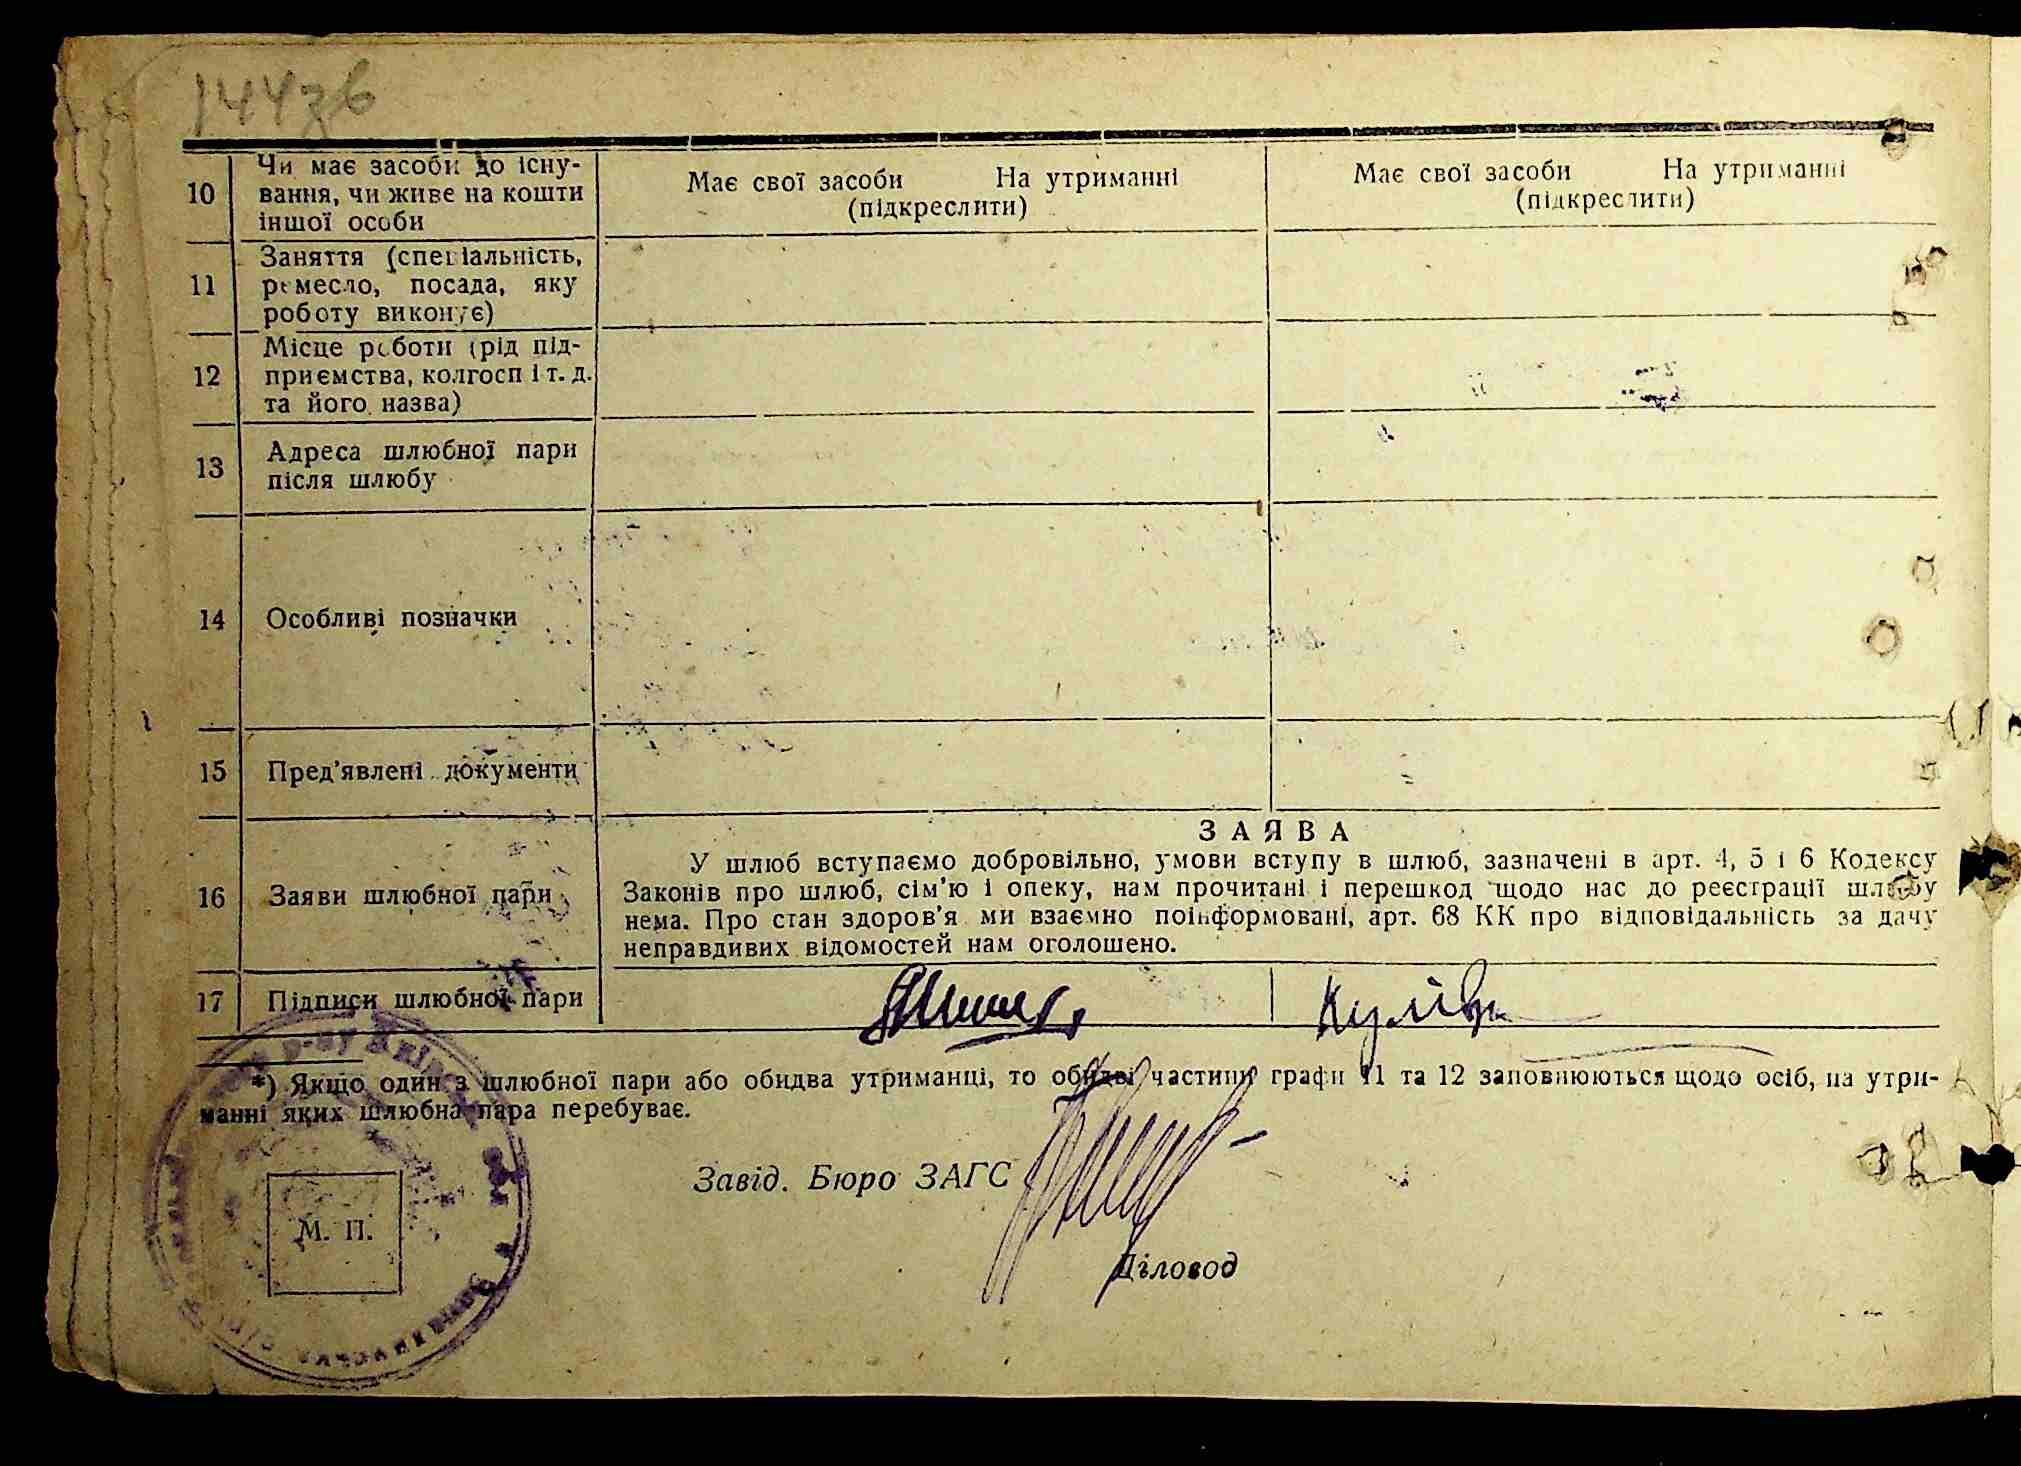 144зв
10
Чи має засоби до існу-
вання, чи живе на кошти
іншої особи
Має свої засоби На утриманні
(підкреслити)
Має свої засоби На утриманні
(підкреслити)
11
Заняття (спеціальність,
ремесло, посада, яку
роботу виконує)
12
Місце роботи (рід під-
приємства, колгосп і т. д.
та його назва)
13
Адреса шлюбної пари
після шлюбу
14
Особливі позначки
15
Пред'явлені документи
16
Заяви шлюбної пари
ЗАЯВА
У шлюб вступаємо добровільно, умови вступу в шлюб, зазначені в арт. 4, 5 і 6 Кодексу
Законів про шлюб, сім'ю і опеку, нам прочитані і перешкод щодо нас до реєстрації шлюбу
нема. Про стан здоров'я ми взаємно поінформовані, арт. 68 КК про відповідальність за дачу
неправдивих відомостей нам оголошено.
17
Підписи шлюбної пари
*) Якщо один з шлюбної пари або обидва утриманці, то обидві частини графи 11 та 12 заповнюються щодо осіб, на утри-
манні яких шлюбна пара перебуває.
р-ну
Завід. Бюро ЗАГС
М. П.
Діловод